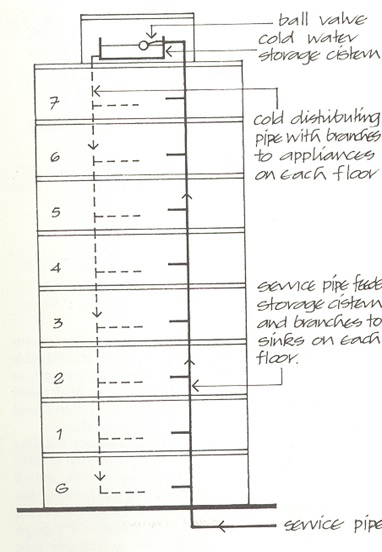 ball valve
cold water
storage cistern
7
cold distributing
pipe with branches
to appliances
on each floor
6
5
4
service pipe feeds
storage cistern
and branches to
sinks on each
floor.
3
2
1
G
service pipe